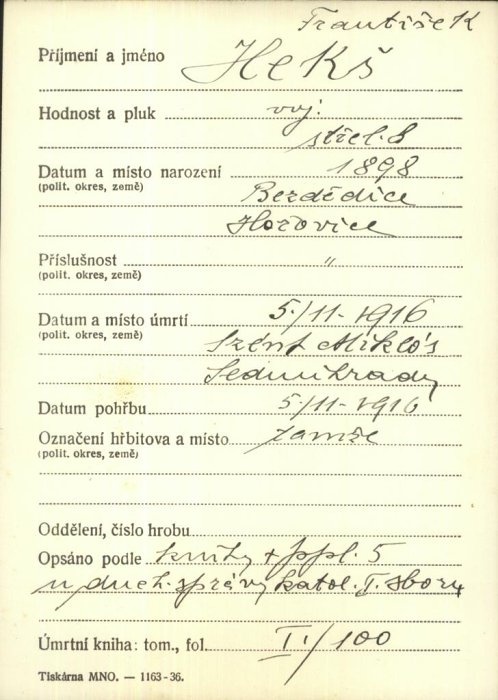 František
Příjmení a jméno Hekš
Hodnost a pluk voj.
střel. 8
Datum a místo narození 1898
(polit. okres, země) Bezdědice
Hořovice
Příslušnost "
(polit. okres, země)
Datum a místo úmrtí 5./11-1916
(polit. okres, země) Szént Miklós
Sedmihrady
Datum pohřbu 5/11-1916
Označení hřbitova a místo tamže
(polit. okres, země)
Oddělení, číslo hrobu
Opsáno podle knihy + ppl. 5
u duch. správy katol. I. sboru
Úmrtní kniha: tom., fol. I./100
Tiskárna MNO. — 1163-36.